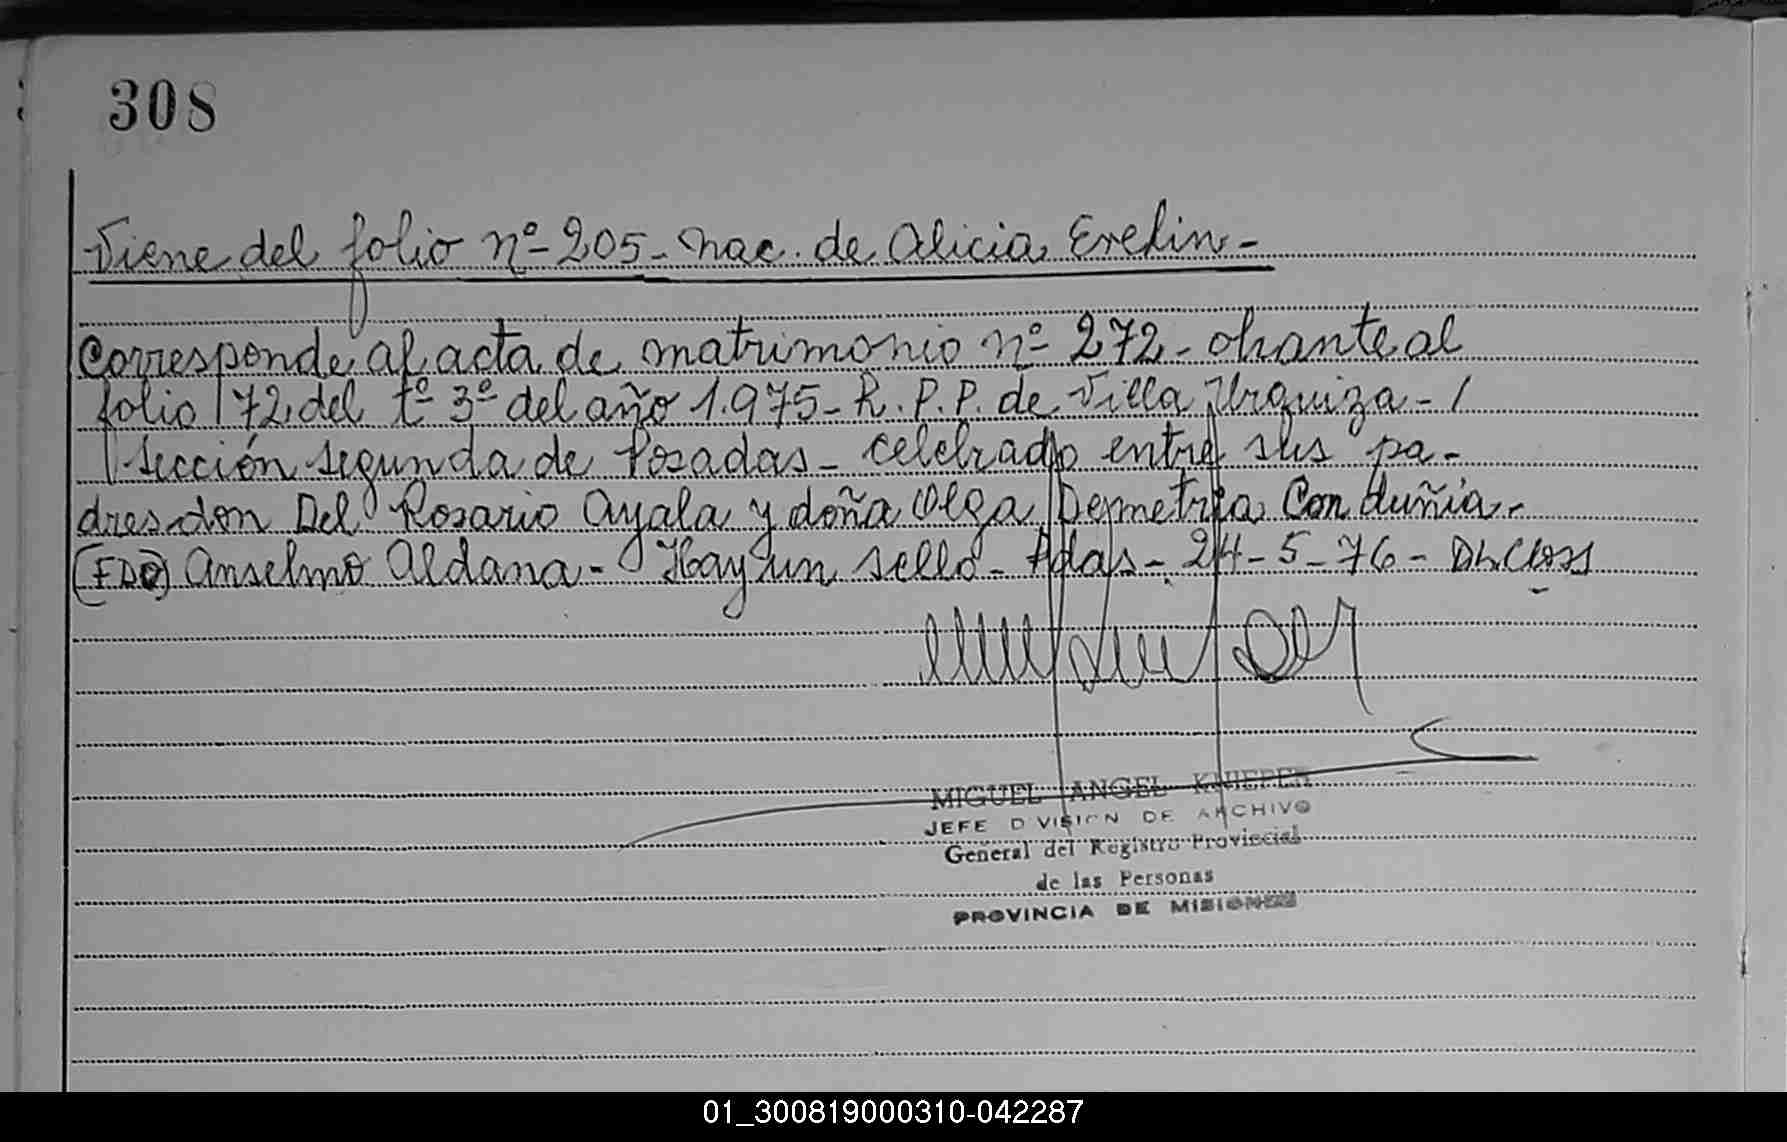 308
Viene del folio nº 205 - nac. de Alicia Evelin -
Corresponde al acta de matrimonio nº 272 - obrante al
folio 172 del tº 3º del año 1.975 - R.P.P. de Villa Urquiza - /
sección segunda de Posadas - celebrado entre sus pa-
dres don Del Rosario Ayala y doña Olga Demetria
(FDO) Anselmo Aldana - Hay un sello - Pdas - 24-5-76 -
MIGUEL ANGEL KNIEPER
JEFE DIVISION DE ARCHIVO
General del Registro Provincial
de las Personas
PROVINCIA DE MISIONES
01_300819000310-042287